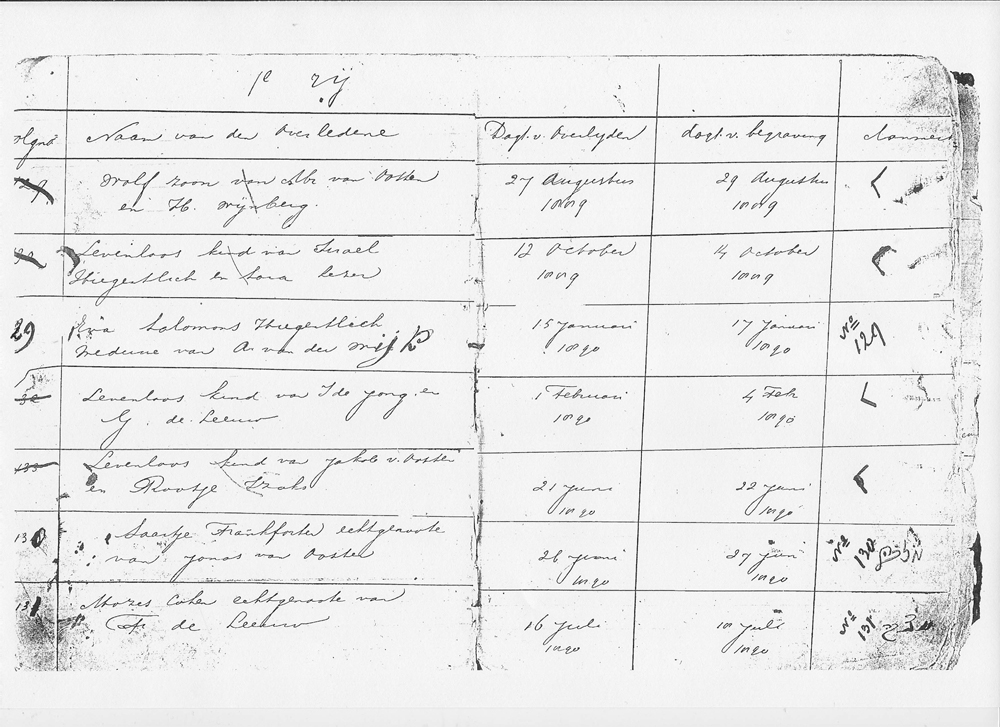 1e rij
Naam van den Overledene Dagt. v. Overlyden dagt. v. begraving
Wolf zoon van Abr van Oosten 27 Augustus 29 Augustus
en H. Wijnberg. 1889 1889
Levenloos kind van Israel 12 October 14 October
Hiegentlich en Sara Lezer 1889 1889
29 Eva Salomons Hiegentlich 15 Januari 17 Januari No 129
weduwe van A. van der Wijk 1890 1890
Levenloos kind van I de Jong en 1 Februari 4 Feb
G. de Leeuw 1890 1890
Levenloos kind van Jakob v. Oosten
en Roosje Izaks 21 Juni 22 Juni
1890 1890
130 Saartje Frankforter echtgenoote No 130
van Jonas van Oosten 26 Juni 27 Juni
1890 1890
131 Mozes Cohen echtgenoote van
de Leeuw 16 Juli 18 Juli No 131
1890 1890